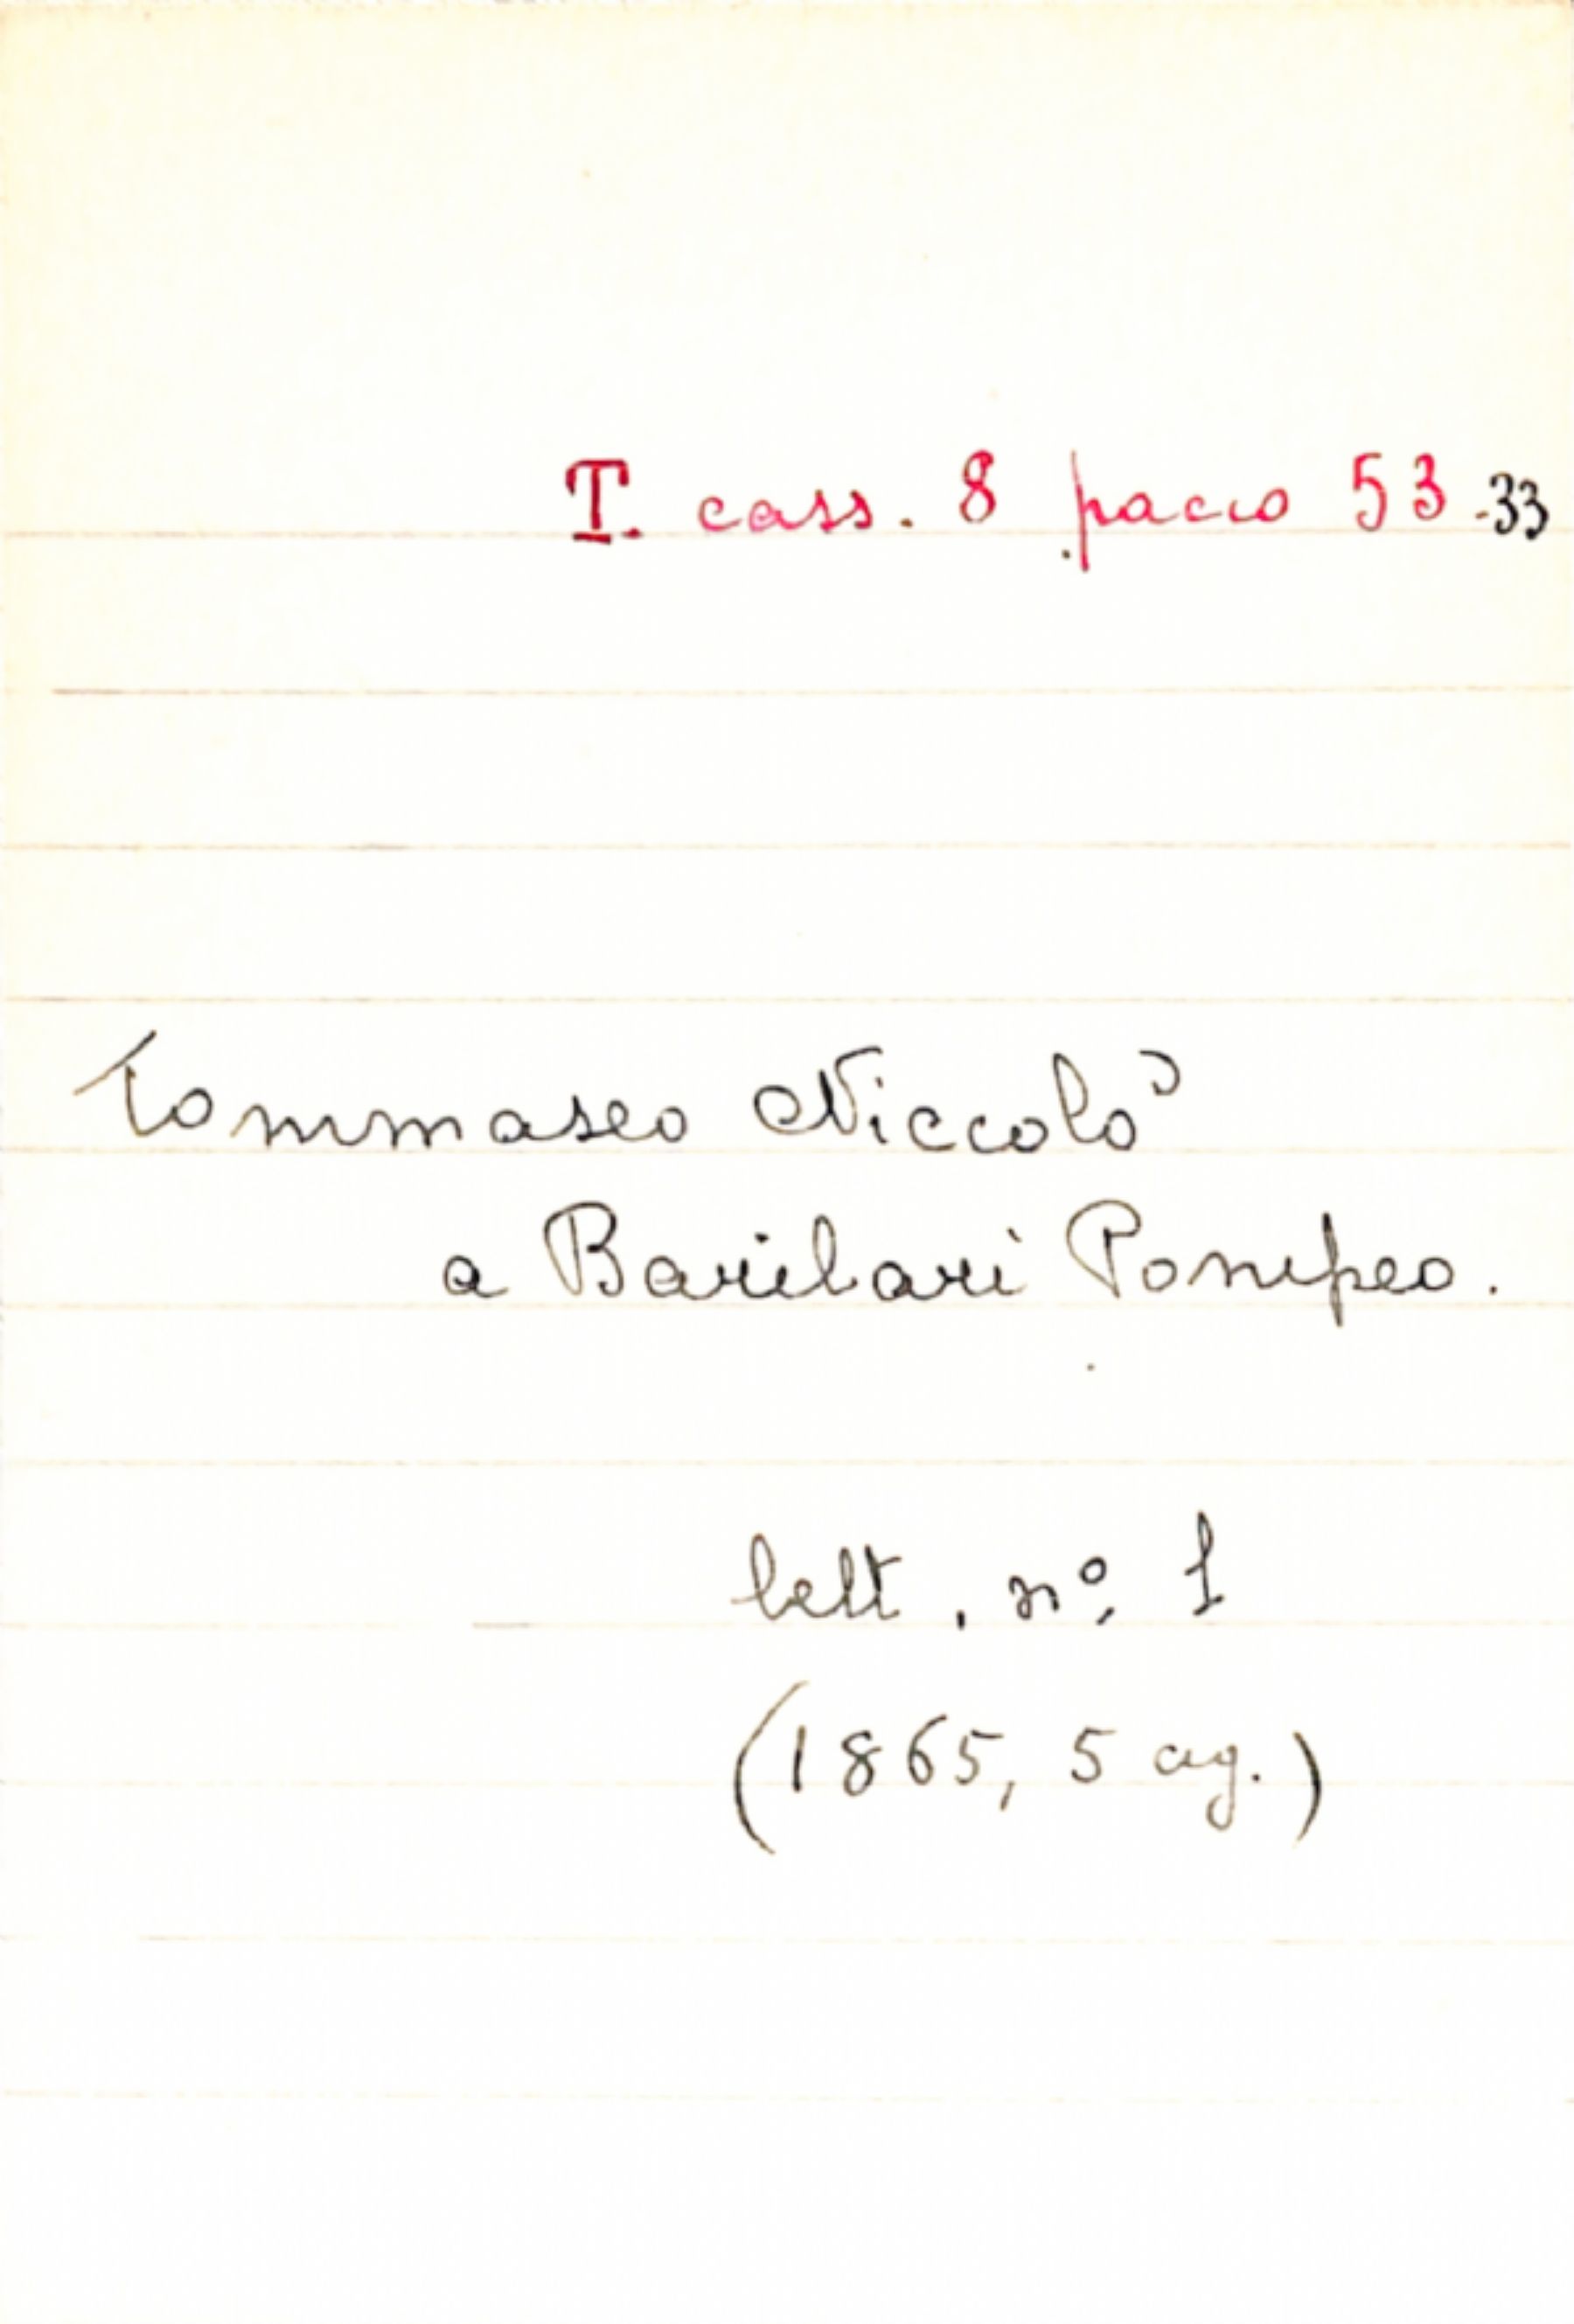 T. cass. 8 pacco 53-33
Tommaseo Niccolò
a Barilari Pompeo.
lett. nº 1
(1865, 5 ag.)